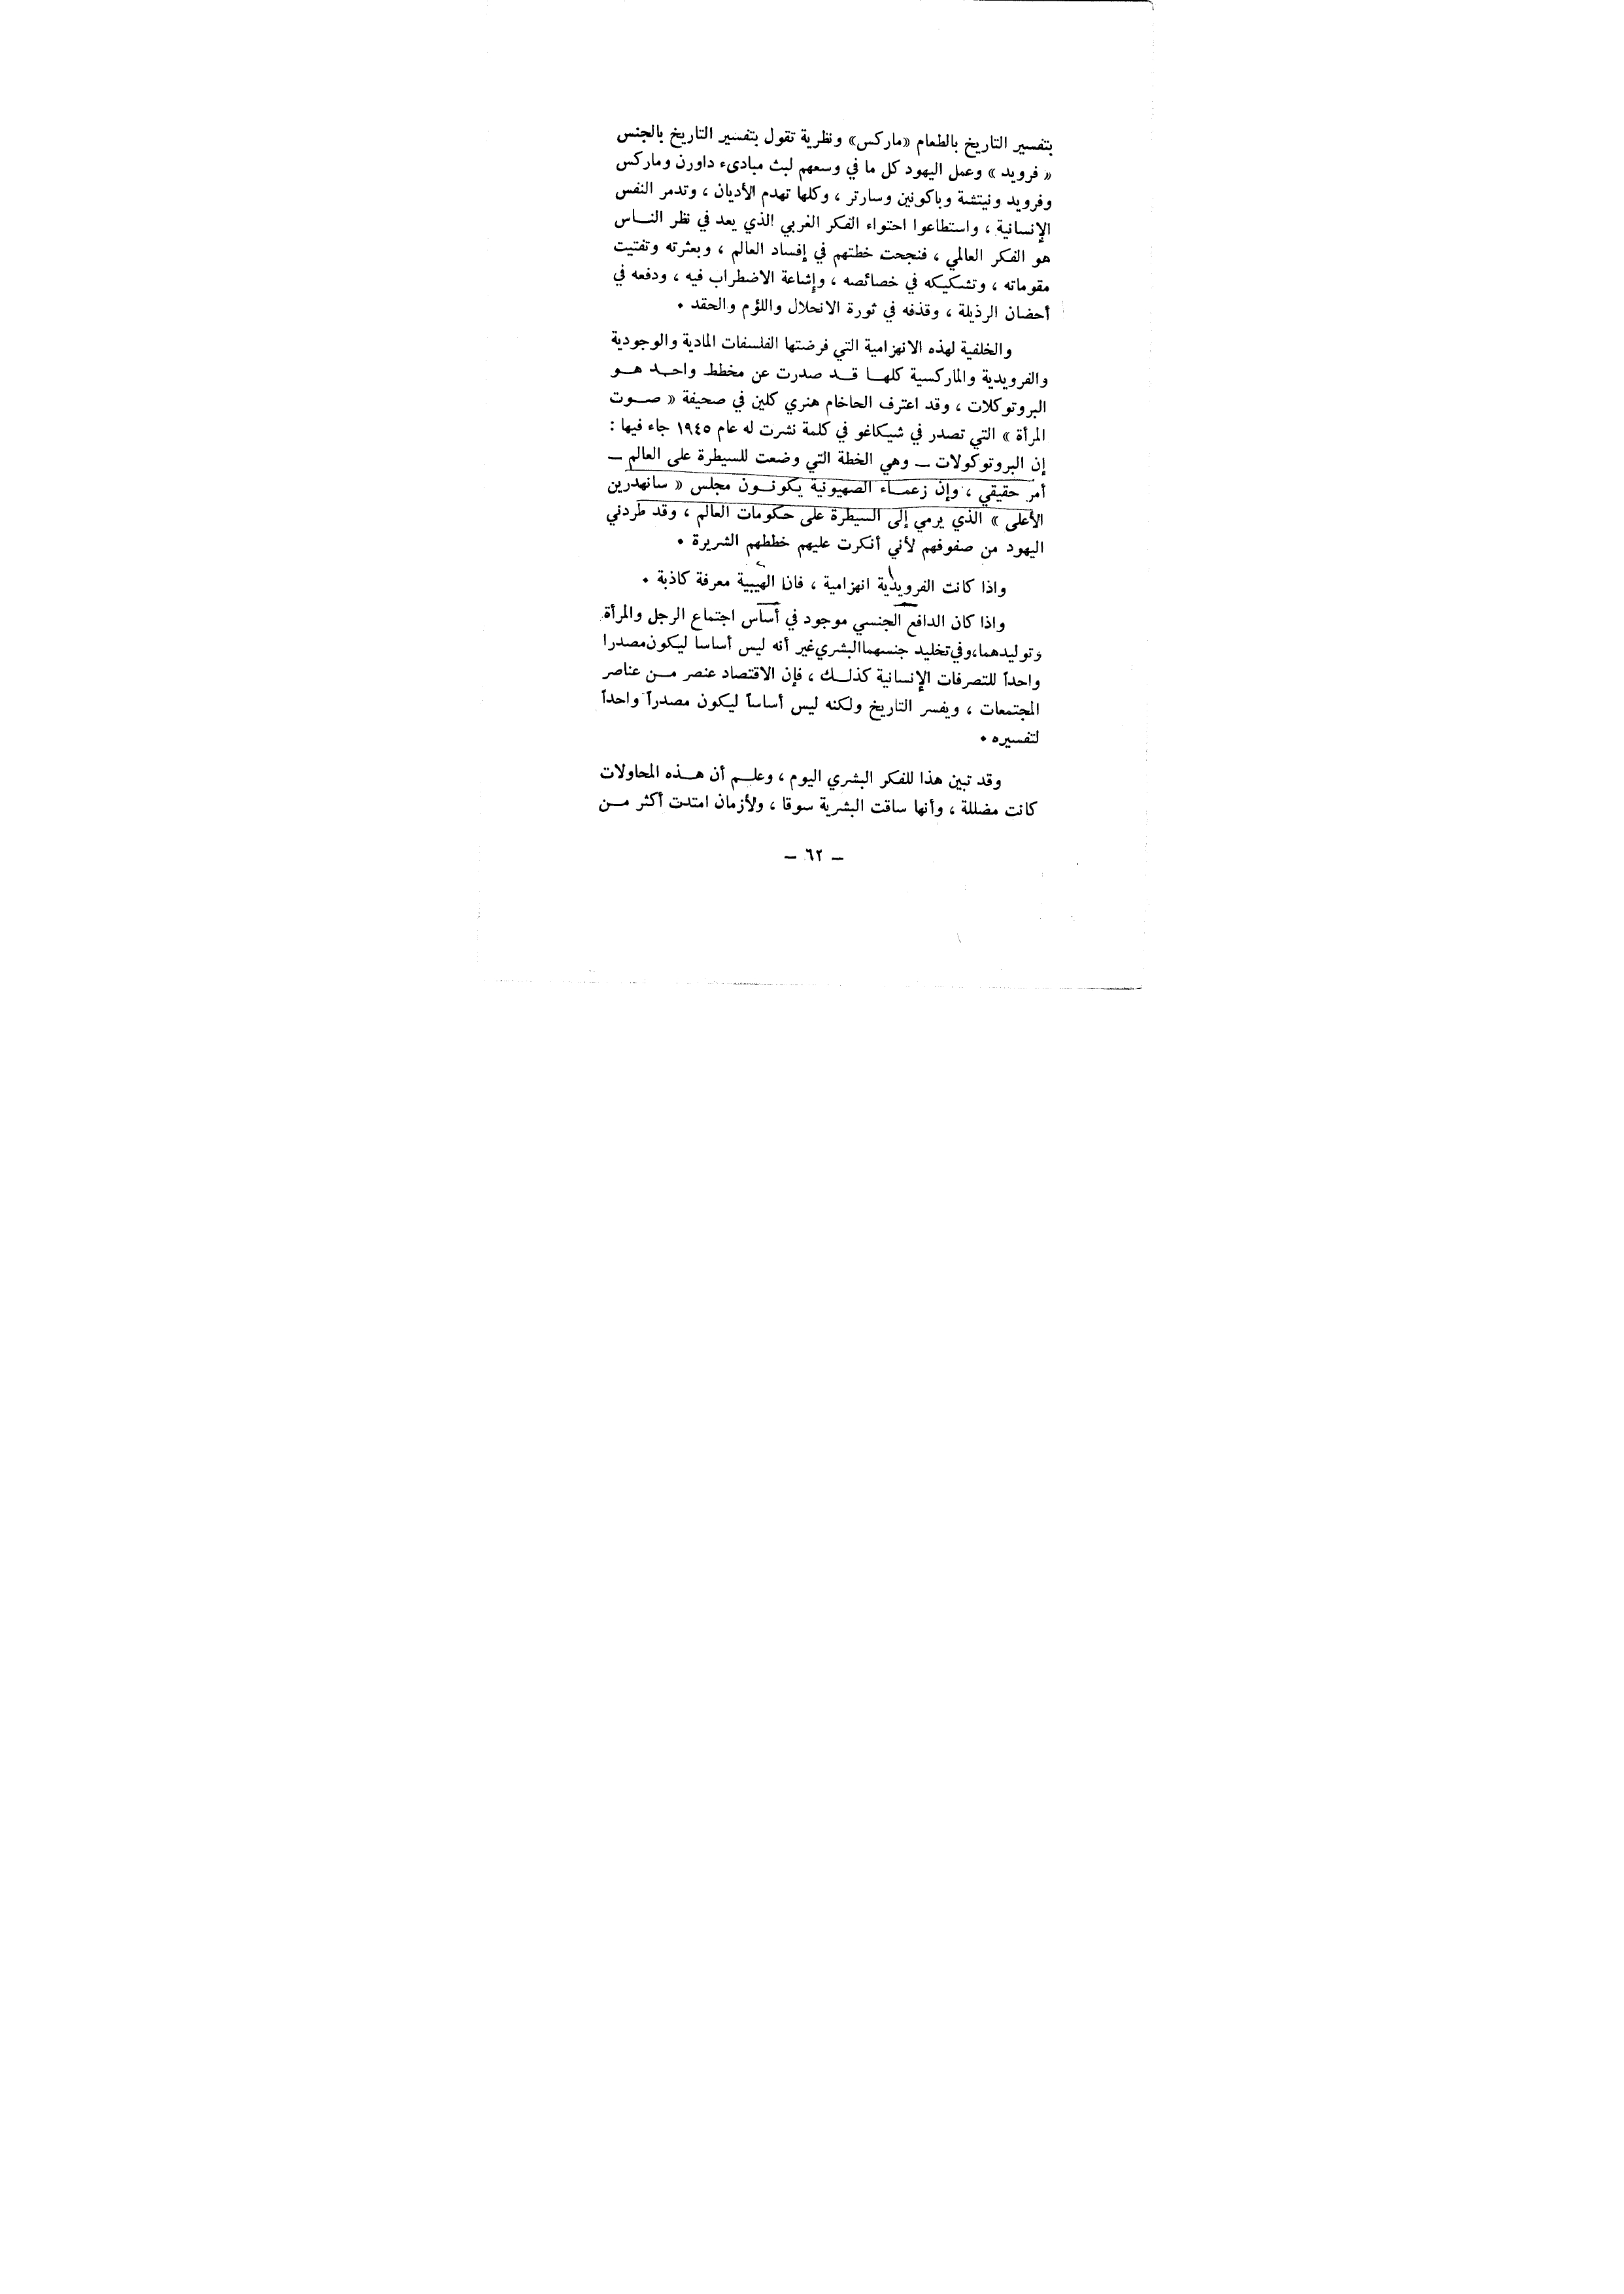 بتفسير التاريخ بالطعام «ماركس» ونظرية تقول بتفسير التاريخ بالجنس
« فرويد » وعمل اليهود كل ما في وسعهم لبث مبادىء داورن وماركس
وفرويد ونيتشة وباكونين وسارتر ، وكلها تهدم الأديان ، وتدمر النفس
الإنسانية ، واستطاعوا احتواء الفكر الغربي الذي يعد في نظر النــاس
هو الفكر العالمي ، فنجحت خطتهم في إفساد العالم ، وبعثرته وتفتيت
مقوماته ، وتشكيكه في خصائصه ، وإشاعة الاضطراب فيه ، ودفعه في
أحضان الرذيلة ، وقذفه في ثورة الانحلال واللؤم والحقد •
والخلفية لهذه الانهزامية التي فرضتها الفلسفات المادية والوجودية
والفرويدية والماركسية كلهــا قــد صدرت عن مخطط واحــد هــو
البروتوكلات ، وقد اعترف الحاخام هنري كلين في صحيفة « صــوت
المرأة » التي تصدر في شيكاغو في كلمة نشرت له عام ١٩٤٥ جاء فيها :
إن البروتوكولات ــ وهي الخطة التي وضعت للسيطرة على العالم ــ
أمر حقيقي ، وإن زعمــاء الصهيونية يكونــون مجلس « سانهدرين
الأعلى » الذي يرمي إلى السيطرة على حكومات العالم ، وقد طردني
اليهود من صفوفهم لأني أنكرت عليهم خططهم الشريرة •
واذا كانت الفرويدية انهزامية ، فان الهيبية معرفة كاذبة •
واذا كان الدافع الجنسي موجود في أساس اجتماع الرجل والمرأة
وتوليدهما،وفي تخليد جنسهما البشري غير أنه ليس أساسا ليكون مصدرا
واحداً للتصرفات الإنسانية كذلــك ، فإن الاقتصاد عنصر مــن عناصر
المجتمعات ، ويفسر التاريخ ولكنه ليس أساساً ليكون مصدراً واحداً
لتفسيره •
وقد تبين هذا للفكر البشري اليوم ، وعلــم أن هــذه المحاولات
كانت مضللة ، وأنها ساقت البشرية سوقا ، ولأزمان امتدت أكثر مــن
ــ ٦٢ ــ